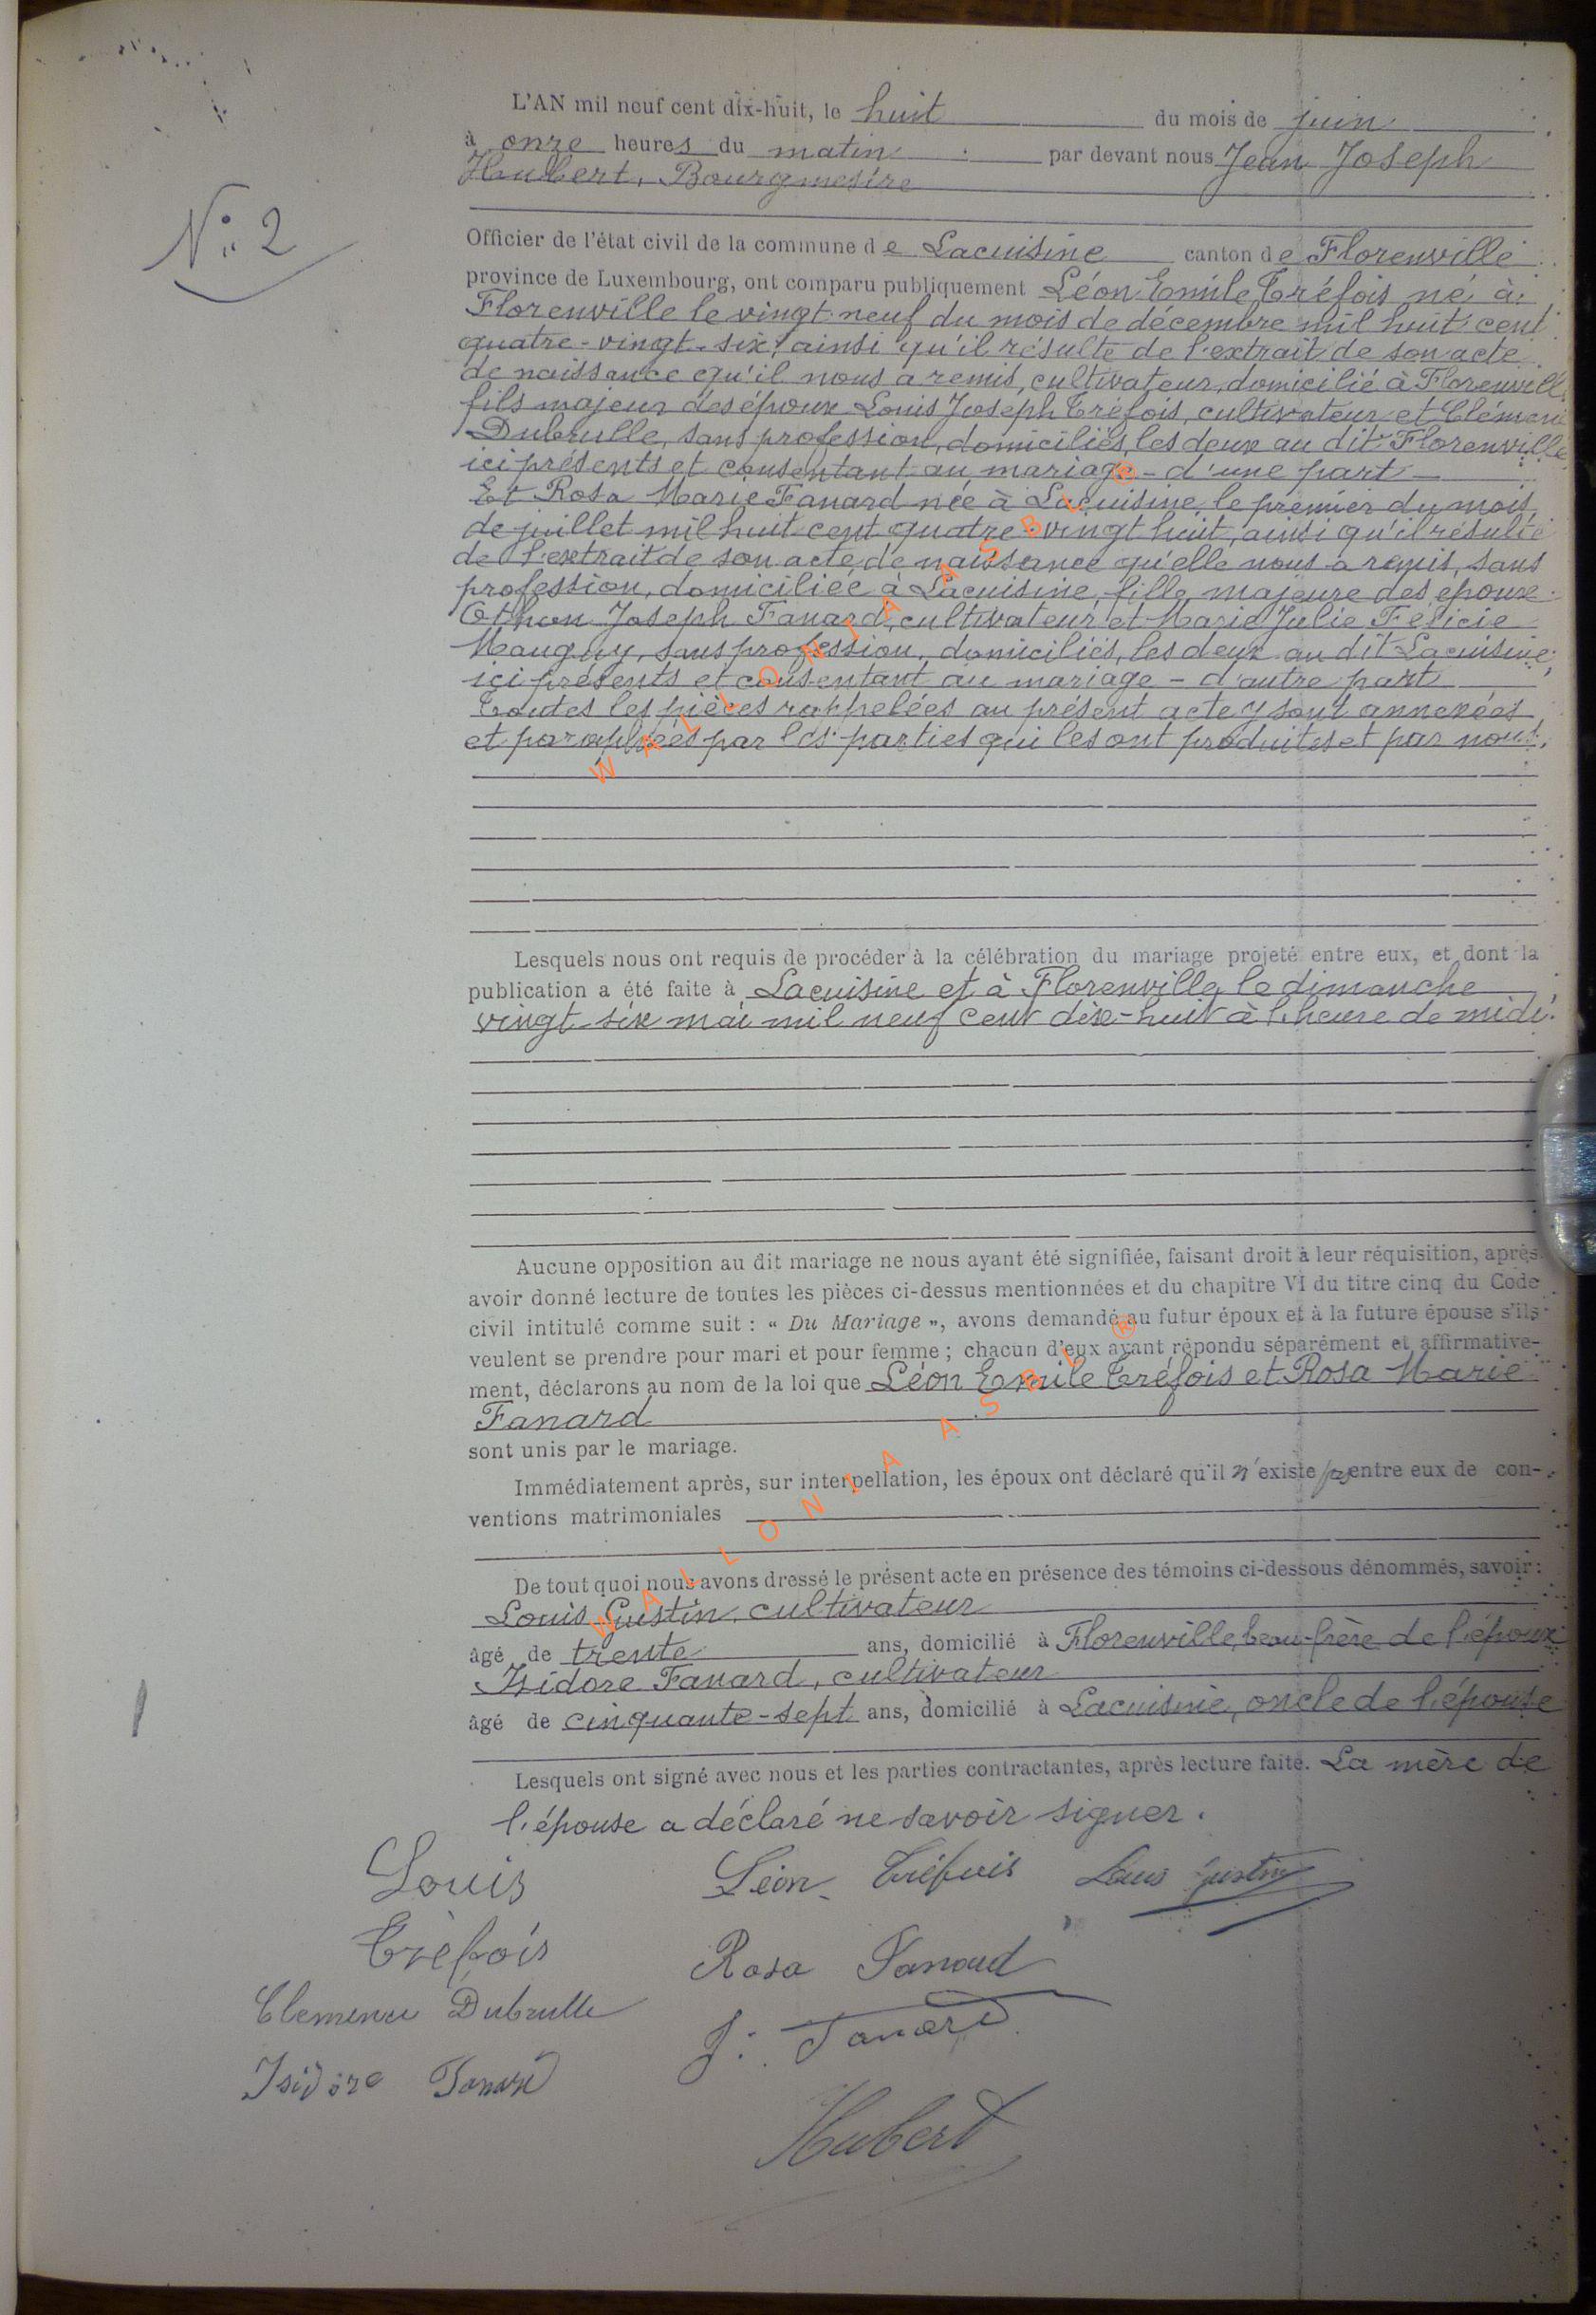 N° 2
L'AN mil neuf cent dix-huit, le huit du mois de juin
à onze heures du matin par devant nous Jean Joseph
Hubert, Bourgmestre
Officier de l'état civil de la commune de Lacuisine canton de Florenville
province de Luxembourg, ont comparu publiquement Léon Emile Tréfois né à
Florenville le vingt-neuf du mois de décembre mil huit cent
quatre-vingt-six, ainsi qu'il résulte de l'extrait de son acte
de naissance qu'il nous a remis, cultivateur, domicilié à Florenville
fils majeur des époux Louis Joseph Tréfois, cultivateur et Clémence
Dubrulle, sans profession, domiciliés, les deux au dit Florenville
ici présents et consentant au mariage - d'une part
Et Rosa Marie Fanard née à Lacuisine, le premier du mois
de juillet mil huit cent quatre-vingt huit, ainsi qu'il résulte
de l'extrait de son acte de naissance qu'elle nous a remis, sans
profession, domiciliée à Lacuisine, fille majeure des époux
Othon Joseph Fanard, cultivateur et Marie Julie Félicie
Mauguy, sans profession, domiciliés, les deux au dit Lacuisine,
ici présents et consentant au mariage - d'autre part
Toutes les pièces rappelées au présent acte y sont annexées
et paraphées par les parties qui les ont produites et par nous.
WALLONIA ASBL ®
Lesquels nous ont requis de procéder à la célébration du mariage projeté entre eux, et dont la
publication a été faite à Lacuisine et à Florenville le dimanche
vingt-six mai mil neuf cent dix-huit à l'heure de midi.
Aucune opposition au dit mariage ne nous ayant été signifiée, faisant droit à leur réquisition, après
avoir donné lecture de toutes les pièces ci-dessus mentionnées et du chapitre VI du titre cinq du Code
civil intitulé comme suit : « Du Mariage », avons demandé au futur époux et à la future épouse s'ils
veulent se prendre pour mari et pour femme ; chacun d'eux ayant répondu séparément et affirmative-
ment, déclarons au nom de la loi que Léon Emile Tréfois et Rosa Marie
Fanard
sont unis par le mariage.
Immédiatement après, sur interpellation, les époux ont déclaré qu'il n'existe pas entre eux de con-
ventions matrimoniales
WALLONIA ASBL ®
De tout quoi nous avons dressé le présent acte en présence des témoins ci-dessous dénommés, savoir :
Louis Gustin, cultivateur
âgé de trente ans, domicilié à Florenville, beau-frère de l'époux
Isidore Fanard, cultivateur
âgé de cinquante-sept ans, domicilié à Lacuisine, oncle de l'épouse
Lesquels ont signé avec nous et les parties contractantes, après lecture faite. La mère de
l'épouse a déclaré ne savoir signer.
Louis Léon Tréfois Louis Gustin
Tréfois Rosa Fanard
Clemence Dubrulle J. Fanard
Isidore Fanard
Hubert